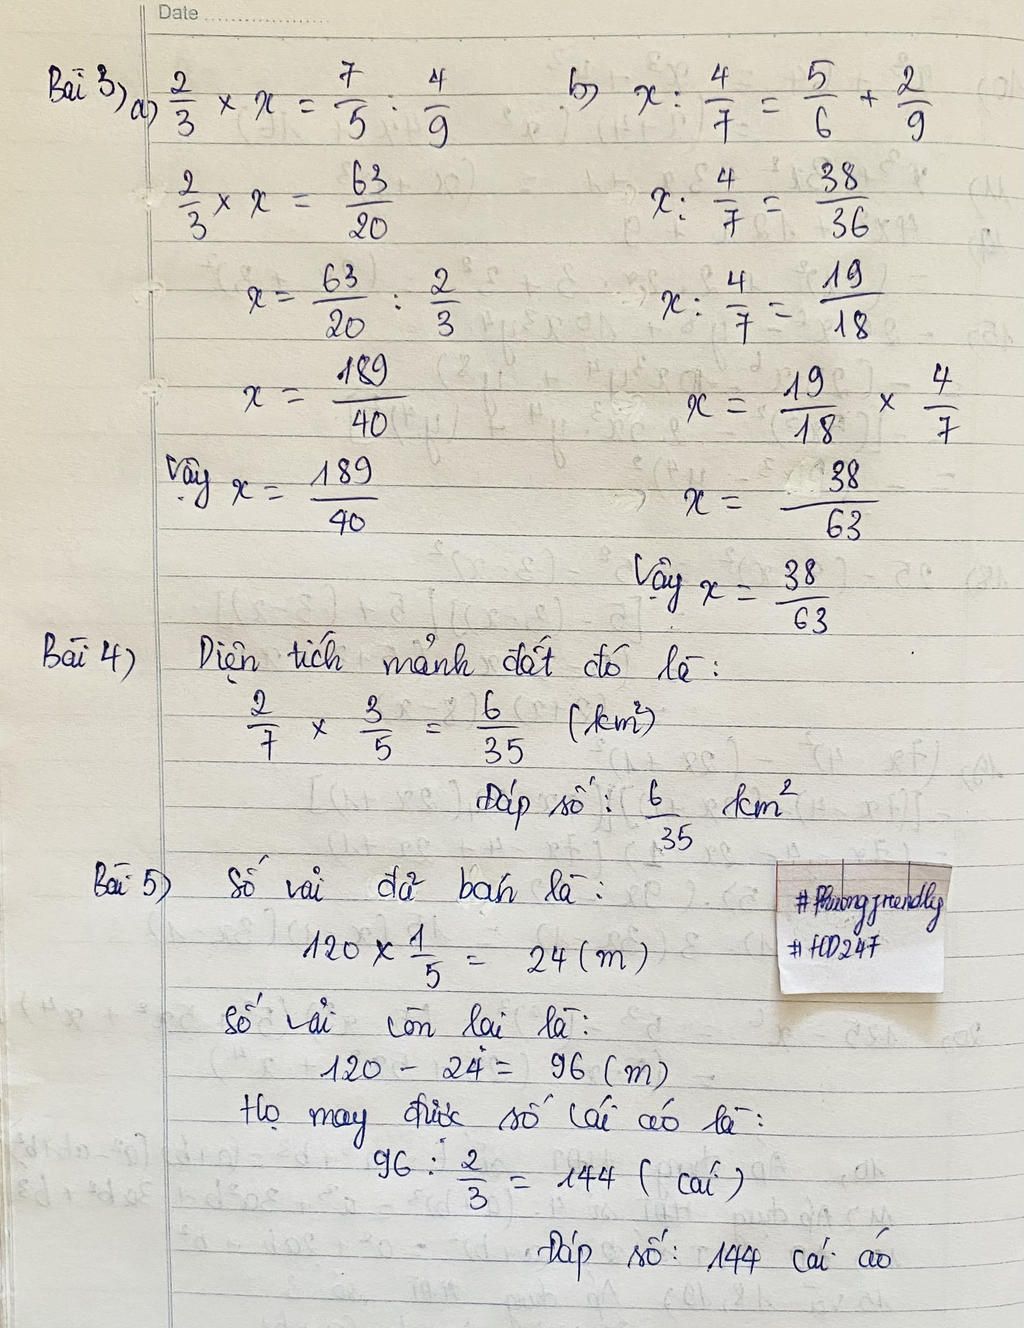 Date
Bài 3) a) 2/3 × x = 7/5 : 4/9
2/3 × x = 63/20
x = 63/20 : 2/3
x = 189/40
Vậy x = 189/40
b) x : 4/7 = 5/6 + 2/9
x : 4/7 = 38/36
x : 4/7 = 19/18
x = 19/18 × 4/7
x = 38/63
Vậy x = 38/63
Bài 4) Diện tích mảnh đất đó là:
2/7 × 3/5 = 6/35 (km²)
Đáp số: 6/35 km²
Bài 5) Số vải đã bán là:
120 × 1/5 = 24 (m)
Số vải còn lại là:
120 - 24 = 96 (m)
Họ may được số cái áo là:
96 : 2/3 = 144 (cái)
Đáp số: 144 cái áo
#Phuongfriendly
#HD247